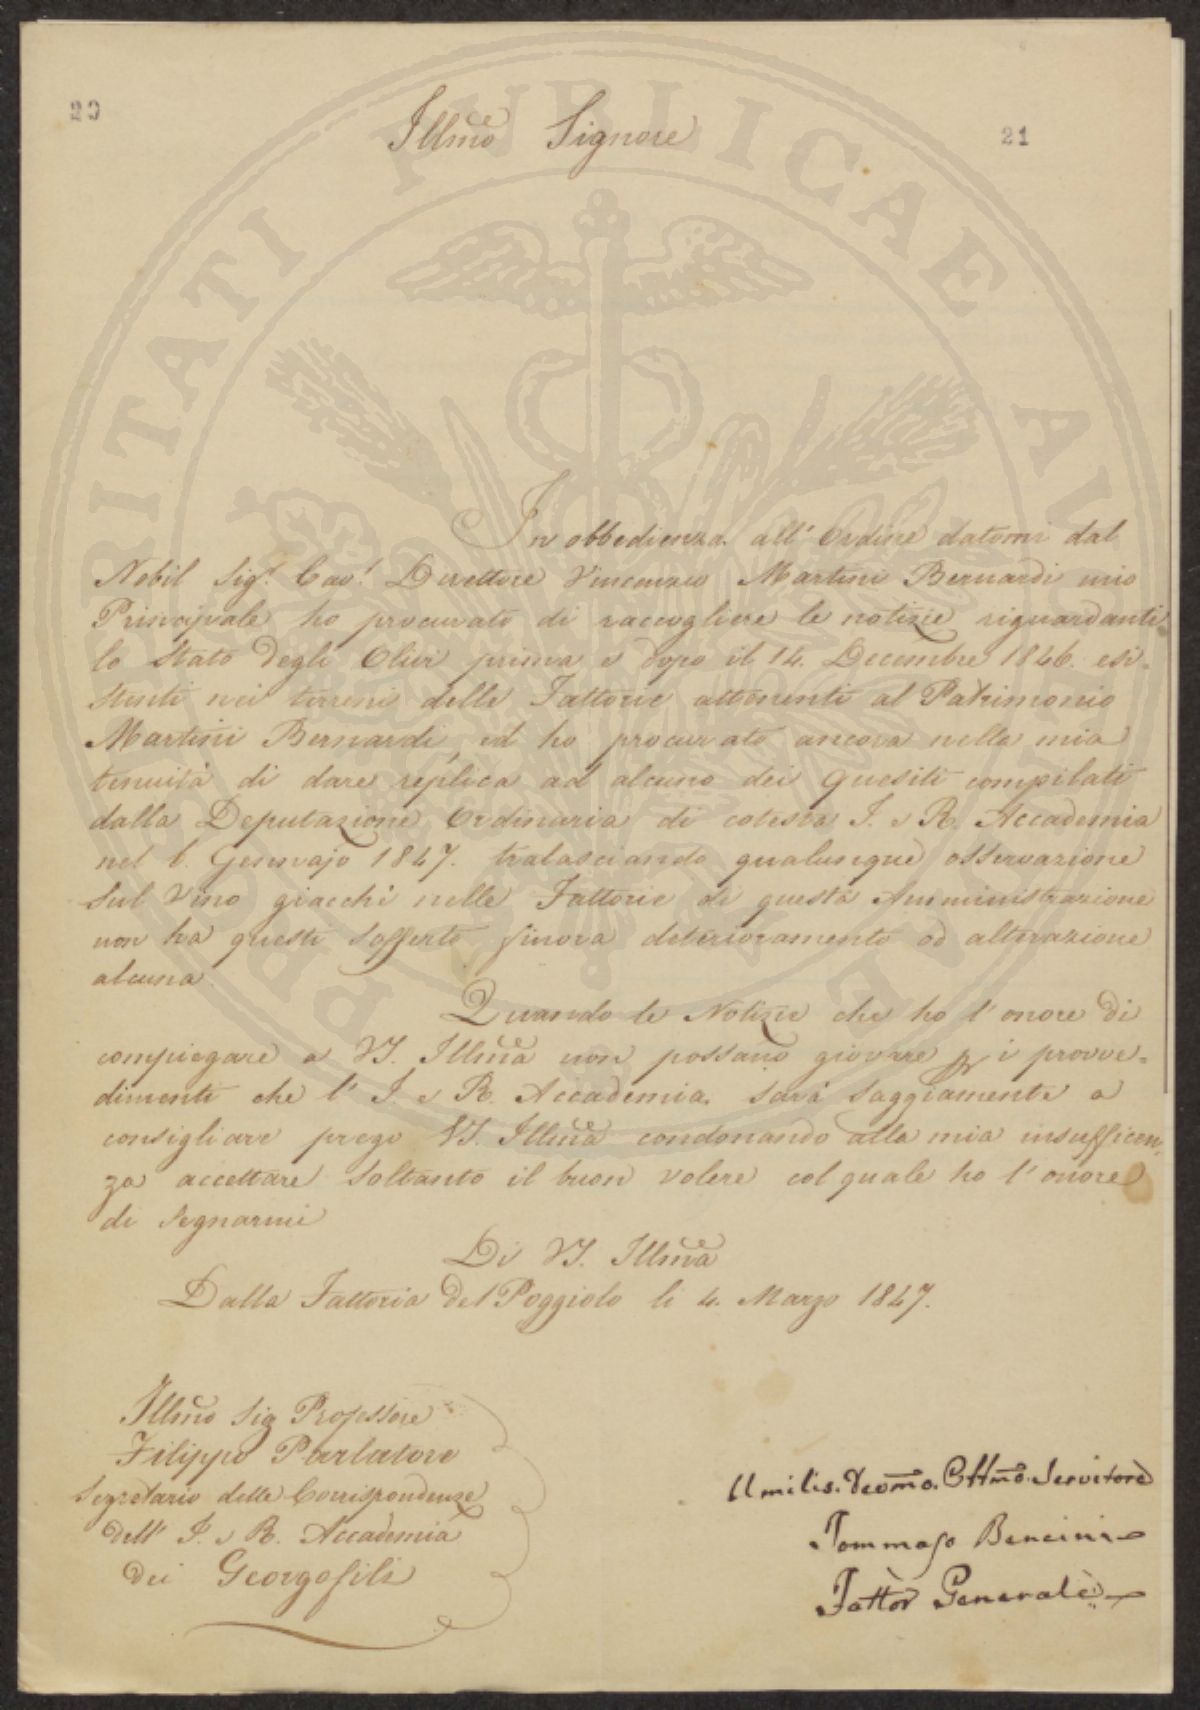 20
21
Illmo Signore
In obbedienza all' Ordine datomi dal
Nobil Sig.r Cav.r Direttore Vincenzio Martini Bernardi mio
Principale ho procurato di raccogliere le notizie riguardanti
lo Stato degli Olivi prima e dopo il 14. Decembre 1846. esi-
stenti nei terreni delle Fattorie attenenti al Patrimonio
Martini Bernardi, ed ho procurato ancora nella mia
tenuità di dare replica ad alcuno dei Quesiti compilati
dalla Deputazione Ordinaria di cotesta I. e R. Accademia
nel 6. Gennajo 1847. tralasciando qualunque osservazione
sul Vino giacchè nelle Fattorie di questa Amministrazione
non ha questi sofferto finora deterioramento od alterazione
alcuna.
Quando le Notizie che ho l' onore di
compiegare a VS. Illma non possano giovare p i provve=
dimenti che l' I. e R. Accademia sarà saggiamente a
consigliare prego VS. Illma condonando alla mia insufficen=
za accettare soltanto il buon volere col quale ho l' onore
di segnarmi
Di VS. Illma
Dalla Fattoria del Poggiolo li 4. Marzo 1847.
Illmo Sig Professore
Filippo Parlatore
Segretario delle Corrispondenze
dell' I. e R. Accademia
dei Georgofili
Umilis. Devmo. Obbmo. Servitore
Tommaso Bencini
Fattor Generale
PROSPERITATI PUBLICAE AUGENDAE